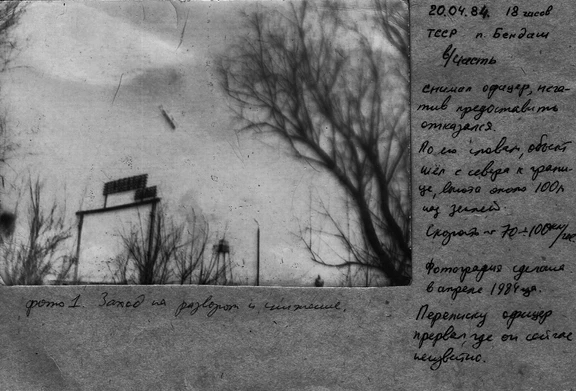 20.04.84. 18 часов
ТССР п. Бендаш
в/часть
снимал офицер, нега-
тив предоставить
отказался.
По его словам, объект
шёл с севера к грани-
це, высота около 100м
над землей.
Скорость ~ 70÷100км/час
Фотография сделана
в апреле 1984 года.
Переписку офицер
прервал, где он сейчас
неизвестно.
фото 1. Заход на разворот и снижение.